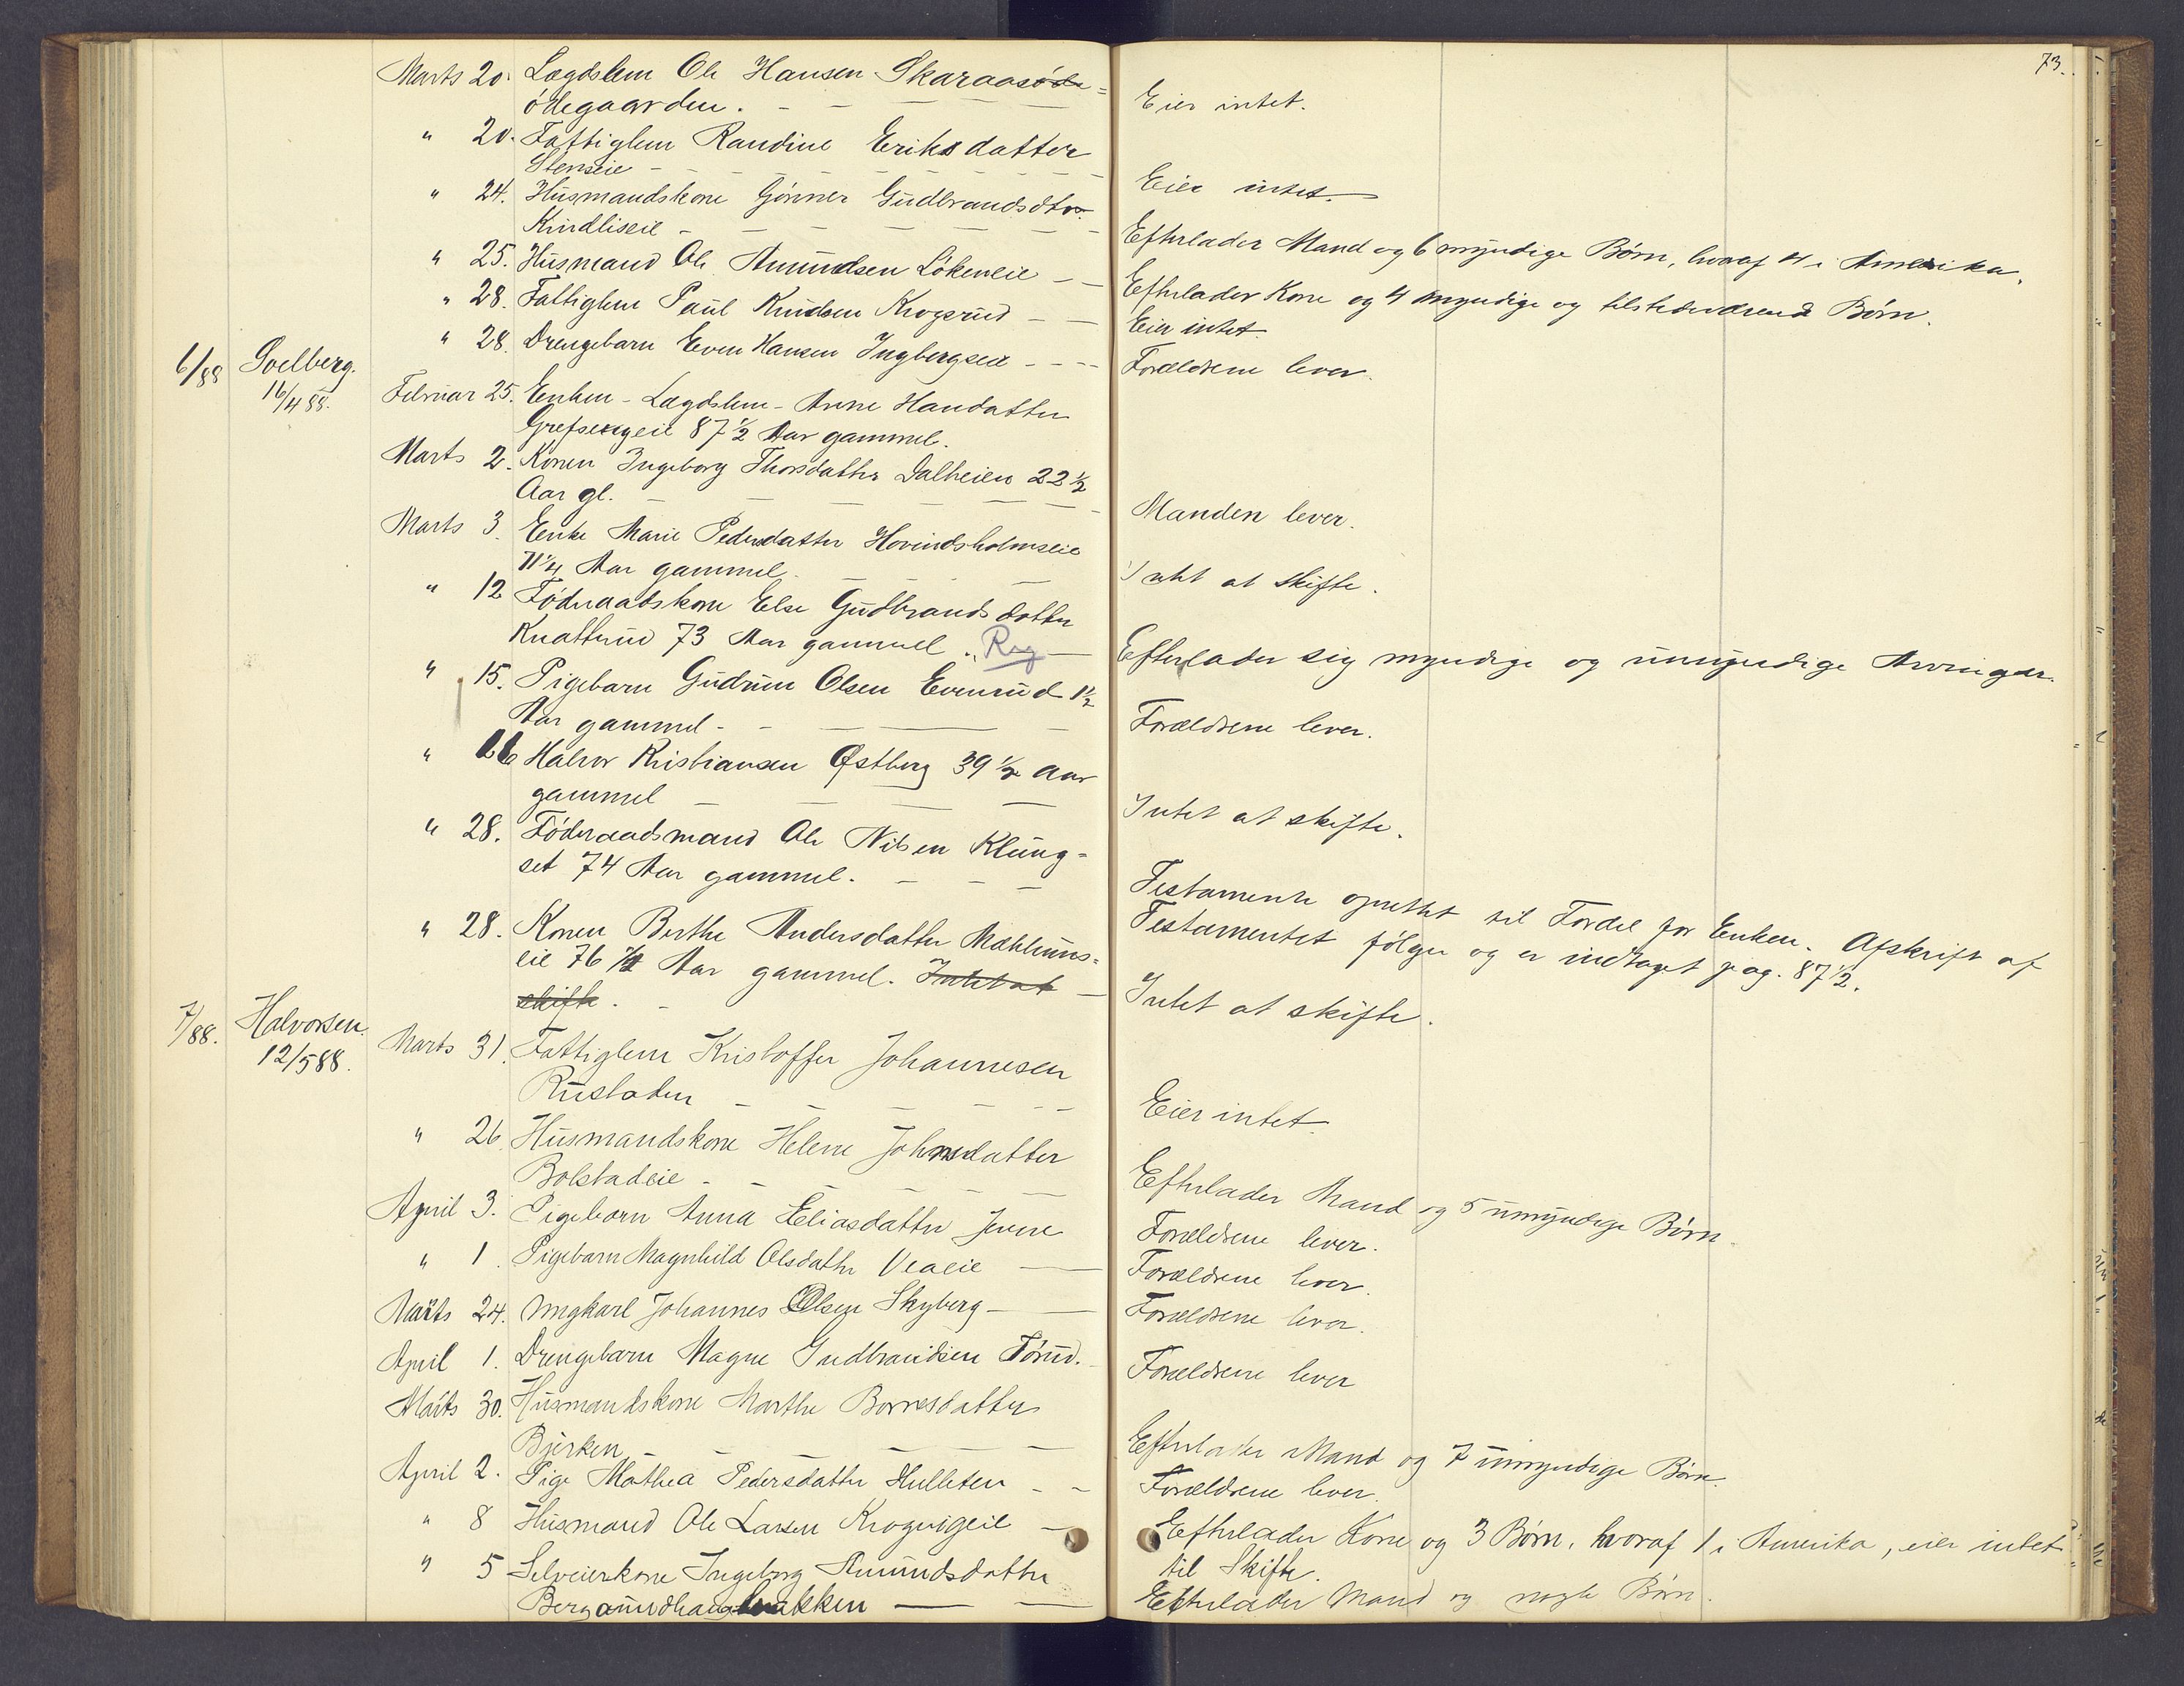 73.
Marts 20. Lægdslem Ole Hansen Skaraasøde=
ødegaarden. Eier intet.
" 20. Fattiglem Randine Eriksdatter
Stenseie Eier intet.
" 24. Husmandskone Gönner Gudbrandsdtr.
Kindliseie Efterlader Mand og 6 myndige Børn, hvoraf 4 i Amerika.
" 25. Husmand Ole Amundsen Lökeneie Efterlader Kone og 4 myndige og tilstedeværend Børn.
" 28. Fattiglem Paul Knudsen Krogsrud Eier intet.
" 28. Drengebarn Even Hansen Ingbergseie Forældrene lever.
6/88 Soelberg. 16/4 88.
Februar 25. Enken - Lægdslem - Anne Hansdatter
Grefsengeie 87 1/2 Aar gammel.
Marts 2. Konen Ingeborg Thorsdatter Dalheien 22 1/2
Aar gl. Manden lever.
Marts 3. Enke Marie Pedersdatter Hovindsholmseie
71 1/4 Aar gammel. Intet at skifte.
" 12 Föderaadskone Else Gudbrandsdatter
Knatterud 73 Aar gammel. Reg Efterlader sig myndige og umyndige Arvinger.
" 15. Pigebarn Gudrun Olsen Evenrud 1 1/2
Aar gammel Forældrene lever.
" 26 Halvor Kristiansen Østberg 39 1/2 Aar
gammel Intet at skifte.
" 28. Föderaadsmand Ole Nilsen Klung=
set 74 Aar gammel. Testamente oprettet til Fordel for Enken. Afskrift af
Testamentet følger og er indtaget pag. 87 1/2.
" 28. Konen Berthe Andersdatter Mæhlums=
eie 76 1/4 Aar gammel. Intet at
skifte. Intet at skifte.
7/88. Halvorsen. 12/5 88.
Marts 31. Fattiglem Kristoffer Johannesen
Rustaden Eier intet.
" 26 Husmandskone Helene Johnsdatter
Bolstadeie Efterlader Mand og 5 umyndige Børn.
April 3. Pigebarn Anna Eliasdatter Jevne Forældrene lever.
" 1. Pigebarn Magnhild Olsdatter Veaeie Forældrene lever.
Marts 24. Ungkarl Johannes Olsen Skyberg Forældrene lever.
April 1. Drengebarn Magne Gudbrandsen Törud. Forældrene lever
Marts 30. Husmandskone Marthe Borresdatter
Bjerken Efterlader Mand og 7 umyndige Børn.
April 2. Pige Mathea Pedersdatter Hulleten Forældrene lever.
" 8 Husmand Ole Larsen Krogvigeie Efterlader Kone og 3 Børn, hvoraf 1 i Amerika, eier intet
til Skifte.
" 5 Selveierkone Ingeborg Amundsdatter
Efterlader Mand og nogle Børn.